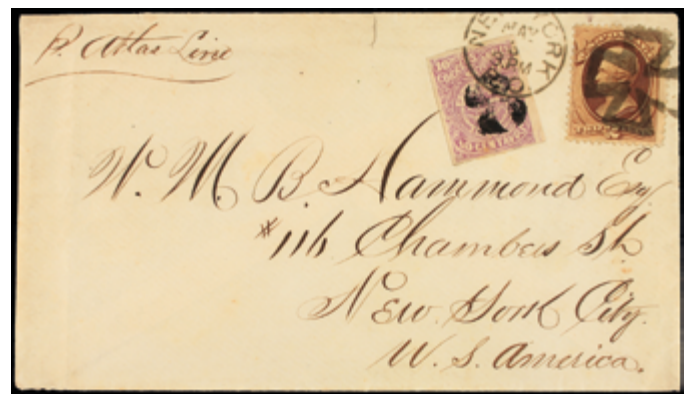 P. Atlas Line
NEW YORK
MAY
6
PM
80
W. M. B. Hammond Esq
#116 Chambers St.
New York City.
U. S. America.